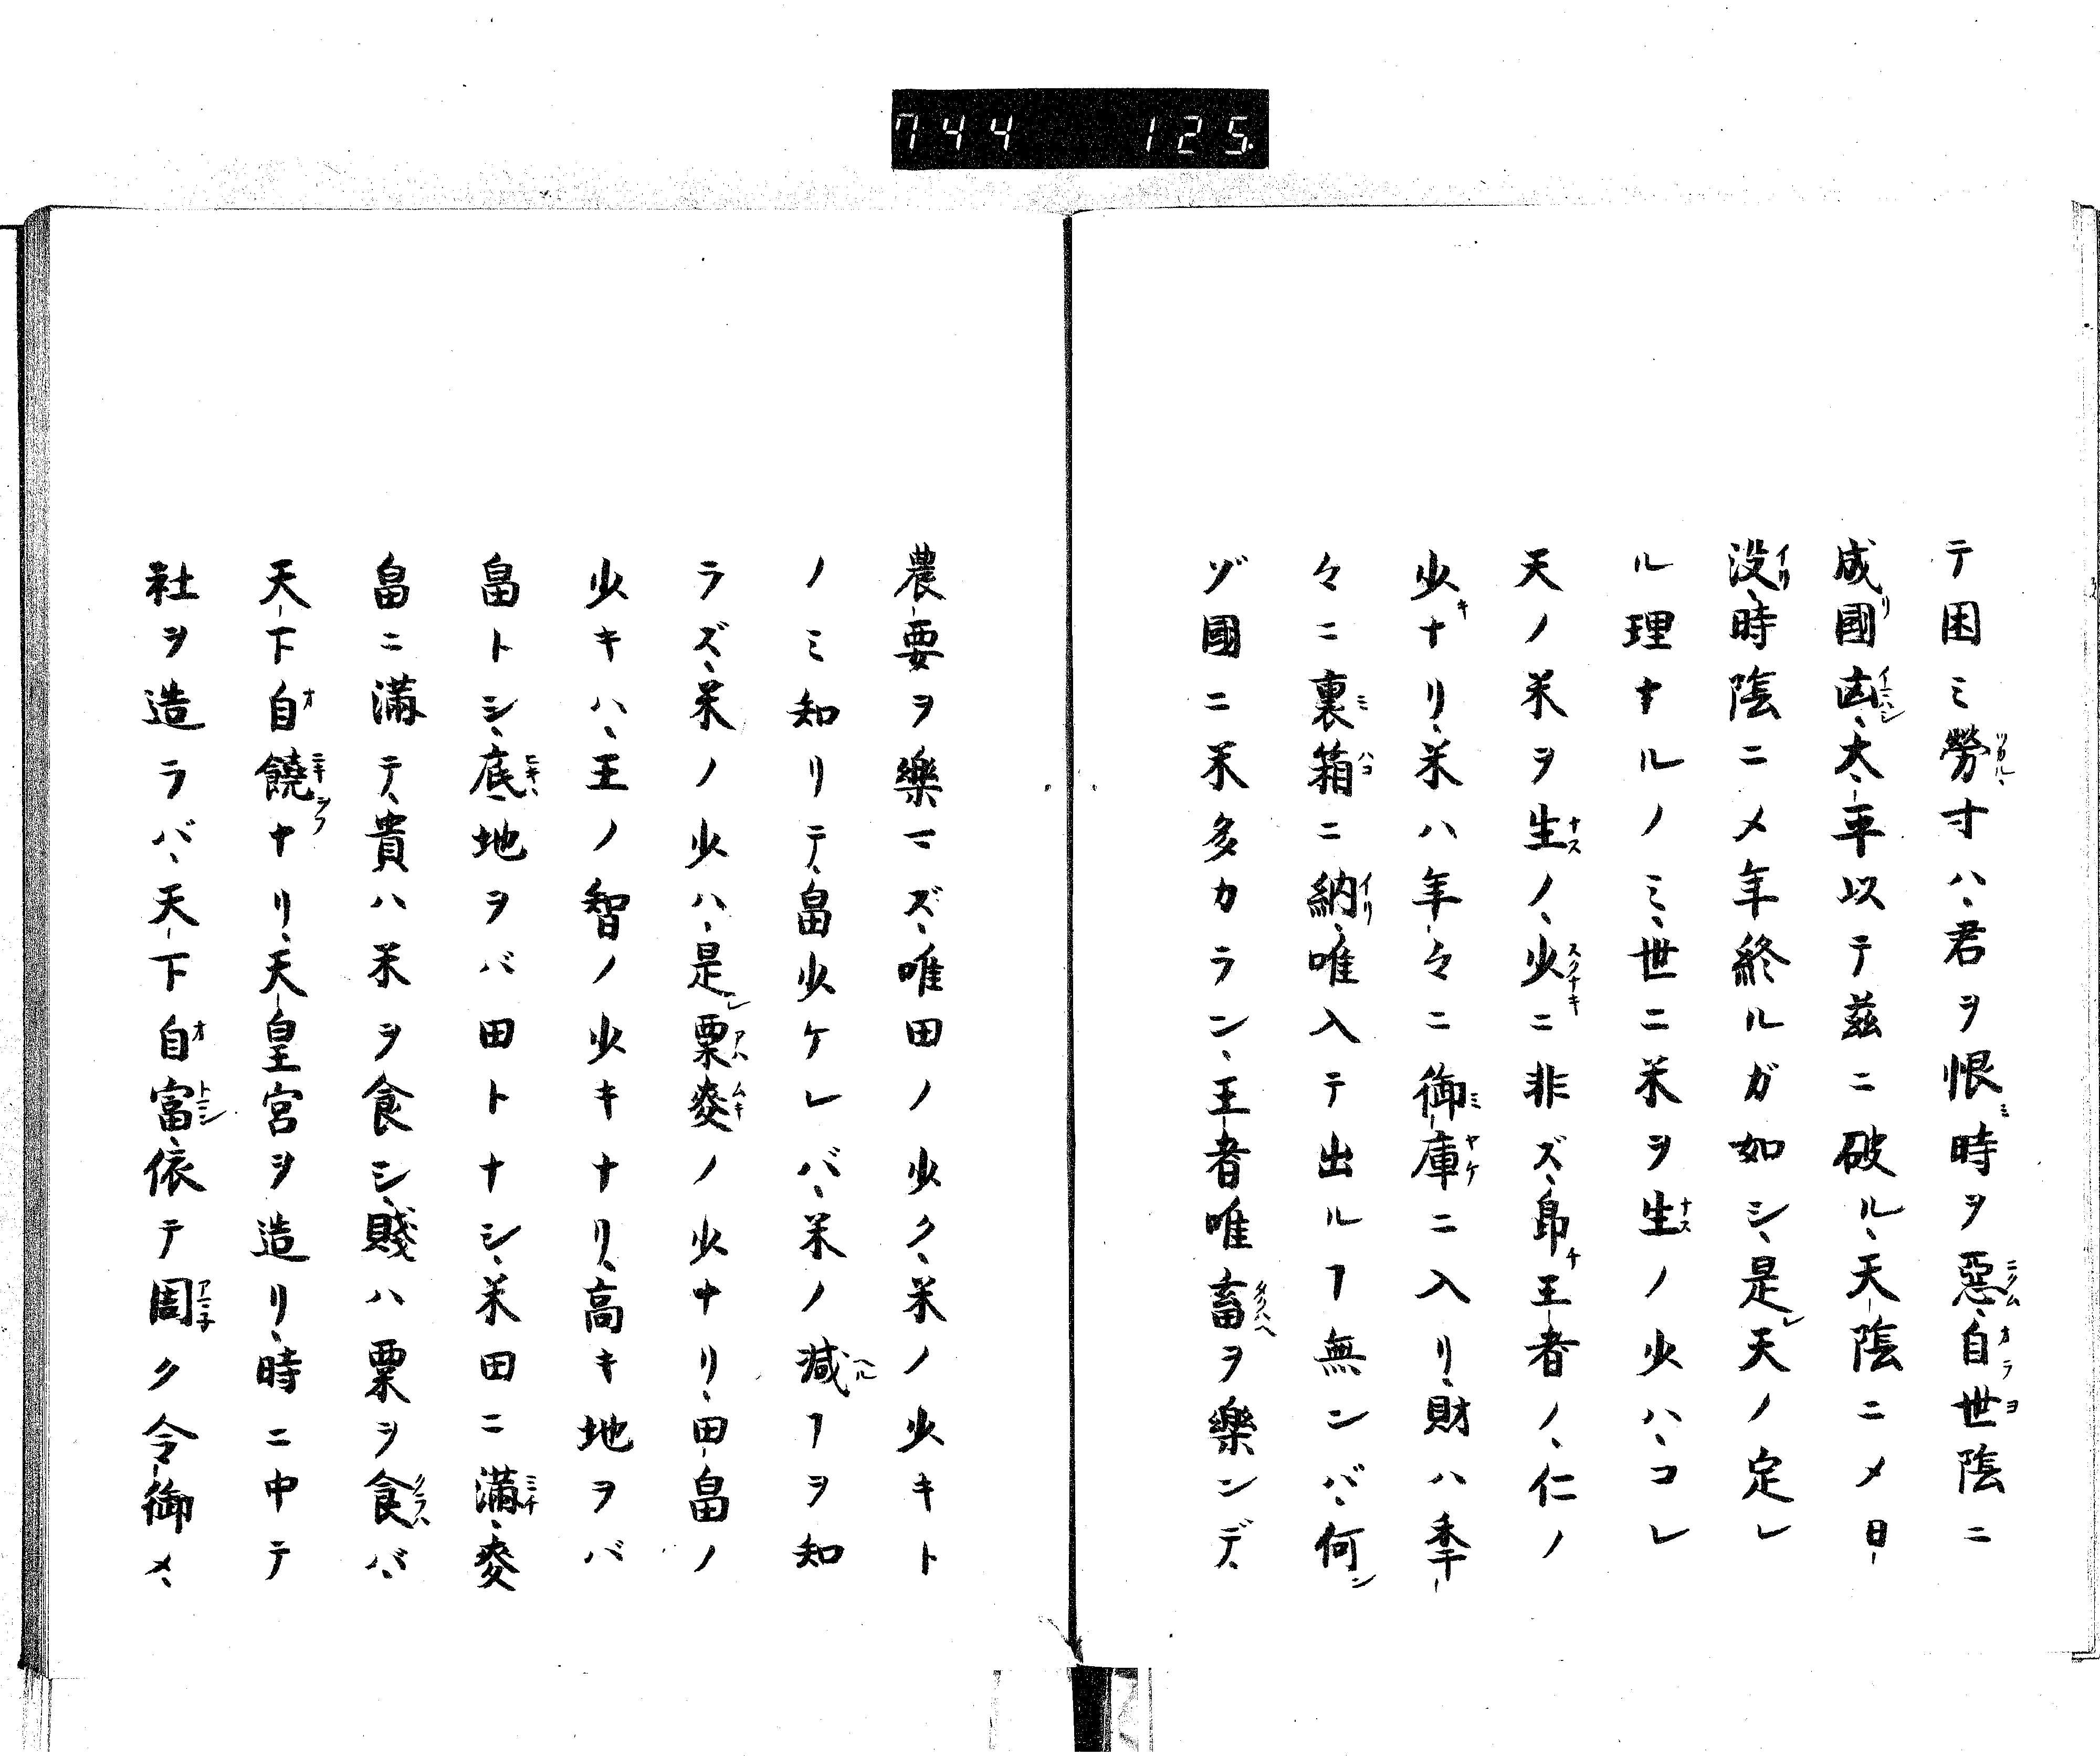 744 125
テ困ミ勞寸ハ、君ヲ恨ミ時ヲ惡、自世陰ニ
成リ國凶、大平以テ茲ニ破ル、天陰ニメ日
没、時陰ニメ年終ルガ如シ、是レ天ノ定レ
ル理ナルノミ、世ニ米ヲ生ノ少ハ、コレ
天ノ米ヲ生ノ、少ニ非ズ、卽チ王者ノ、仁ノ
少キナリ、米ハ年々ニ御庫ニ入リ、財ハ季
々ニ裏箱ニ納、唯入テ出ルヿ無ンバ、何ン
ゾ國ニ米多カラン、王者唯畜ヲ樂ンデ、
農要ヲ樂マズ、唯田ノ少ク、米ノ少キト
ノミ知リテ、畠少ケレバ、米ノ減ルヿヲ知
ラズ、米ノ少ハ、是レ粟麥ノ少ナリ、田畠ノ
少キハ、王ノ智ノ少キナリ、高キ地ヲバ
畠トシ、底地ヲバ田トナシ、米田ニ滿、麥
畠ニ滿テ、貴ハ米ヲ食シ、賤ハ粟ヲ食バ、
天下自饒ナリ、天皇宮ヲ造リ、時ニ中テ
社ヲ造ラバ、天下自富、依テ周ク令御メ、